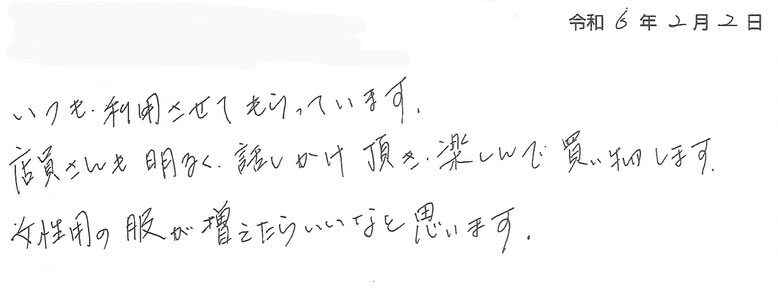 令和6年2月2日
いつも利用させてもらっています.
店員さんも明るく、話しかけ頂き、楽しんで買い物します.
女性用の服が増えたらいいなと思います.